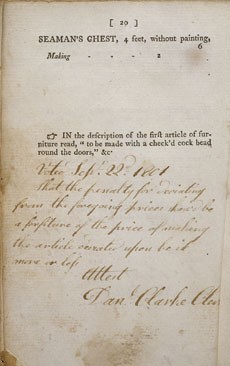 [ 20 ]
SEAMAN'S CHEST, 4 feet, without painting,
6
Making - - - 2
☞ IN the description of the first article of fur-
niture read, "to be made with a check'd cock bead
round the doors," &c·
Voted Sep. 22d. 1801
That the penalty for deviating
from the foregoing prices shall be
a forfeiture of the price of making
the article deviated upon be it
more or less
Attest
Danl. Clarke Clerk